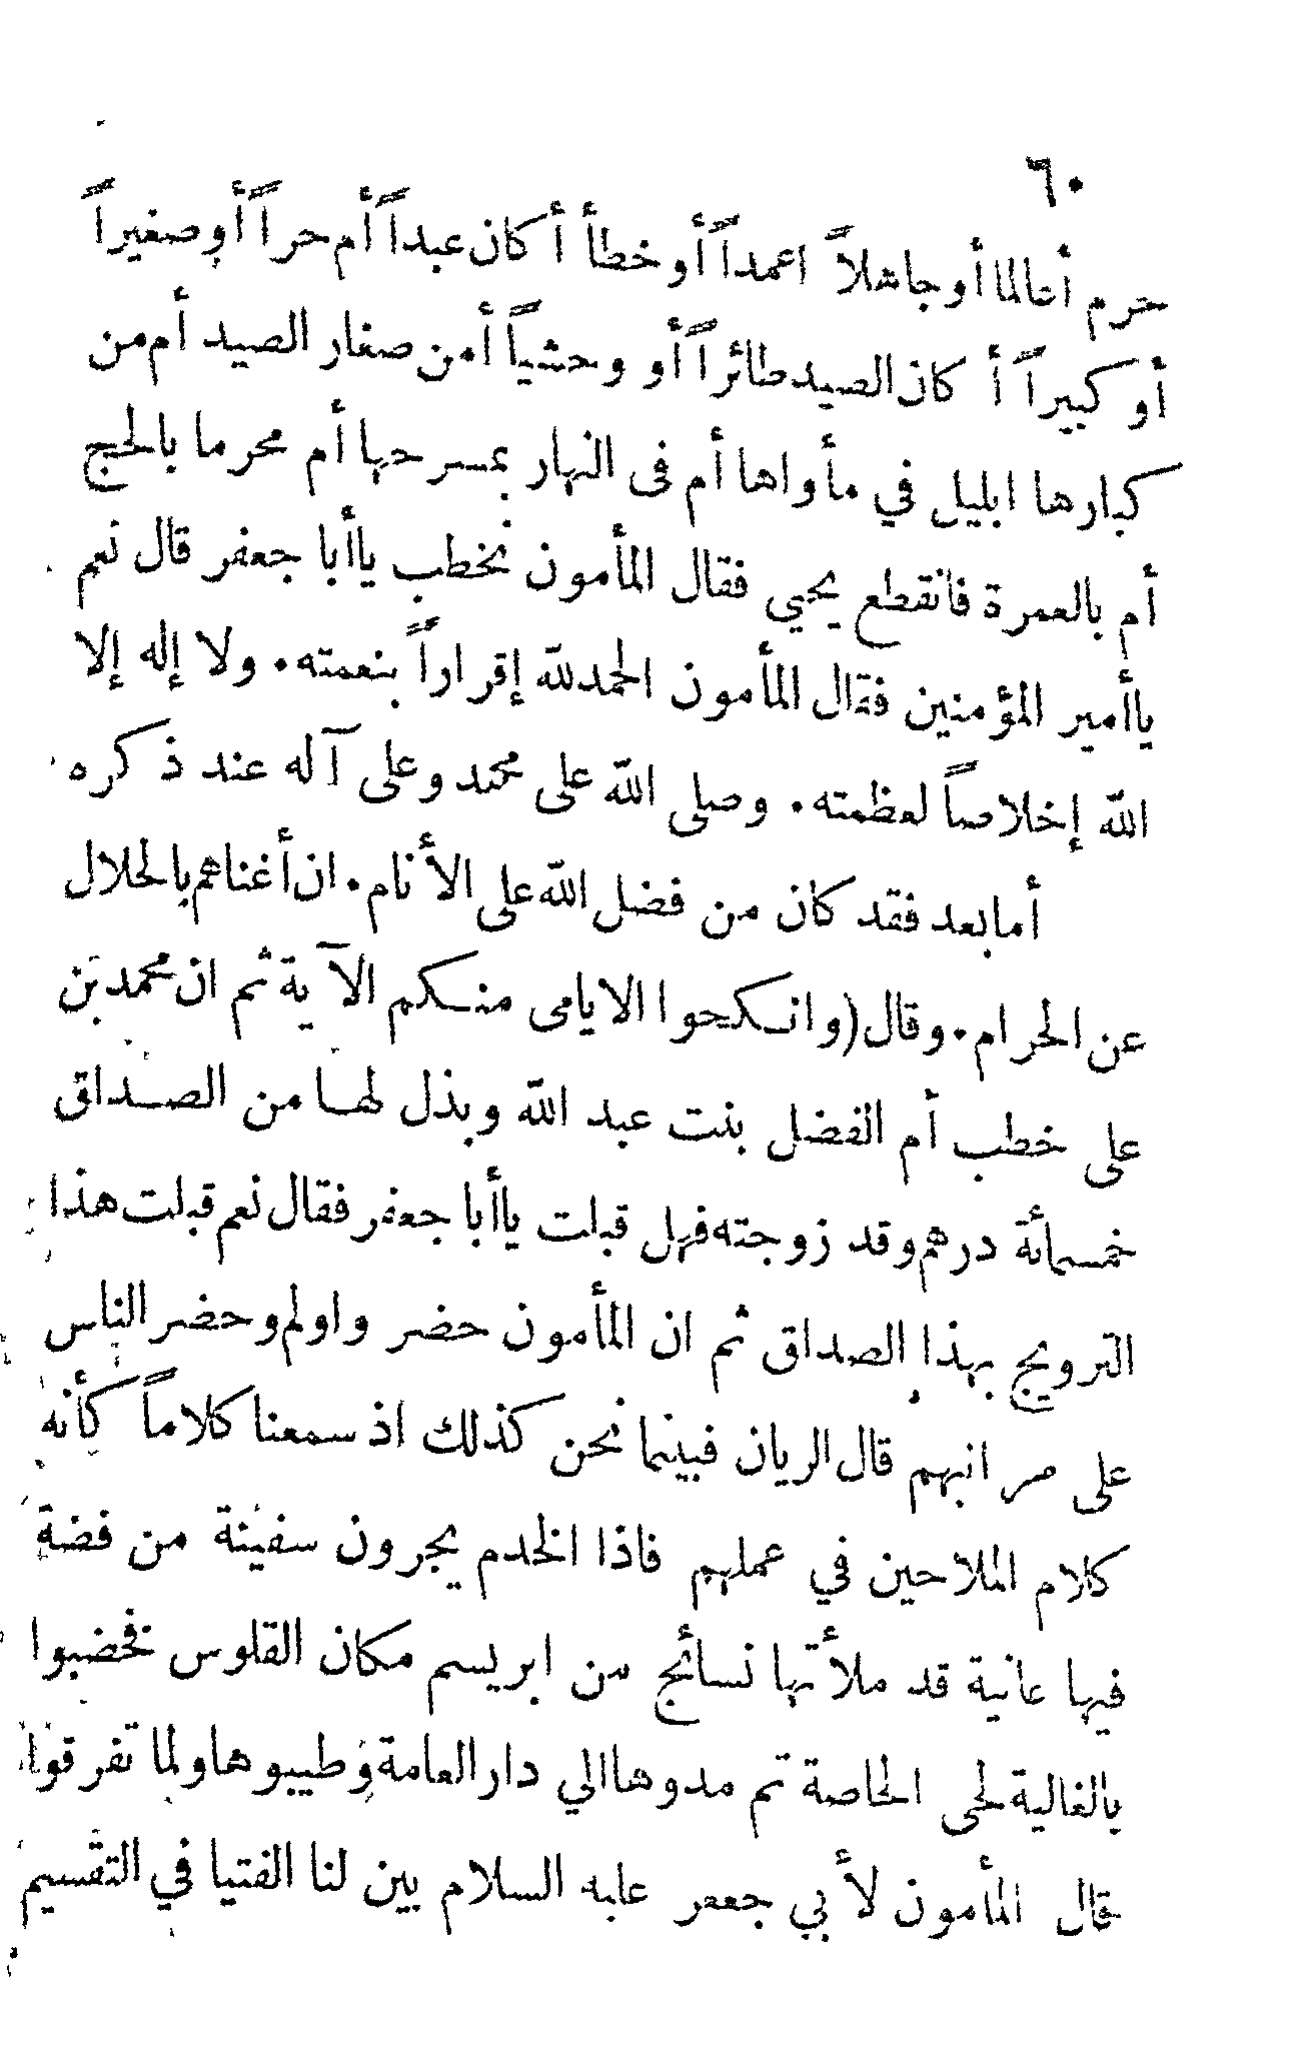 ٦٠
حرم أعالما أو جاهلاً اعمداً أو خطأ أ كان عبداً أم حراً أو صغيراً
أو كبيراً أ كان الصيد طائراً أو وحشياً أمن صغار الصيد أم من
كبارها ابليل في مأواها أم فى النهار بمسرحها أم محرما بالحج
أم بالعمرة فانقطع يحيي فقال المأمون تخطب ياأبا جعفر قال نعم
ياأمير المؤمنين فقال المأمون الحمدلله إقراراً بنعمته . ولا إله إلا
الله إخلاصاً لعظمته . وصلى الله على محمد وعلى آله عند ذكره
أما بعد فقد كان من فضل الله على الأنام . ان أغناهم بالحلال
عن الحرام . وقال (وانكحوا الايامى منكم الآية ثم ان محمد بن
على خطب أم الفضل بنت عبد الله وبذل لها من الصداق
خمسمائة درهم وقد زوجته فهل قبلت ياأبا جعفر فقال نعم قبلت هذا
التزويج بهذا الصداق ثم ان المأمون حضر واولم وحضر الناس
على مراتبهم قال الريان فبينما نحن كذلك اذ سمعنا كلاماً كأنه
كلام الملاحين في عملهم فاذا الخدم يجرون سفينة من فضة
فيها غالية قد ملأتها نسائج من ابريسم مكان القلوس فخضبوا
بالغالية لحى الخاصة ثم مدوها الي دار العامة وطيبوها ولما تفرقوا
قال المأمون لأبي جعفر عليه السلام بين لنا الفتيا في التقسيم